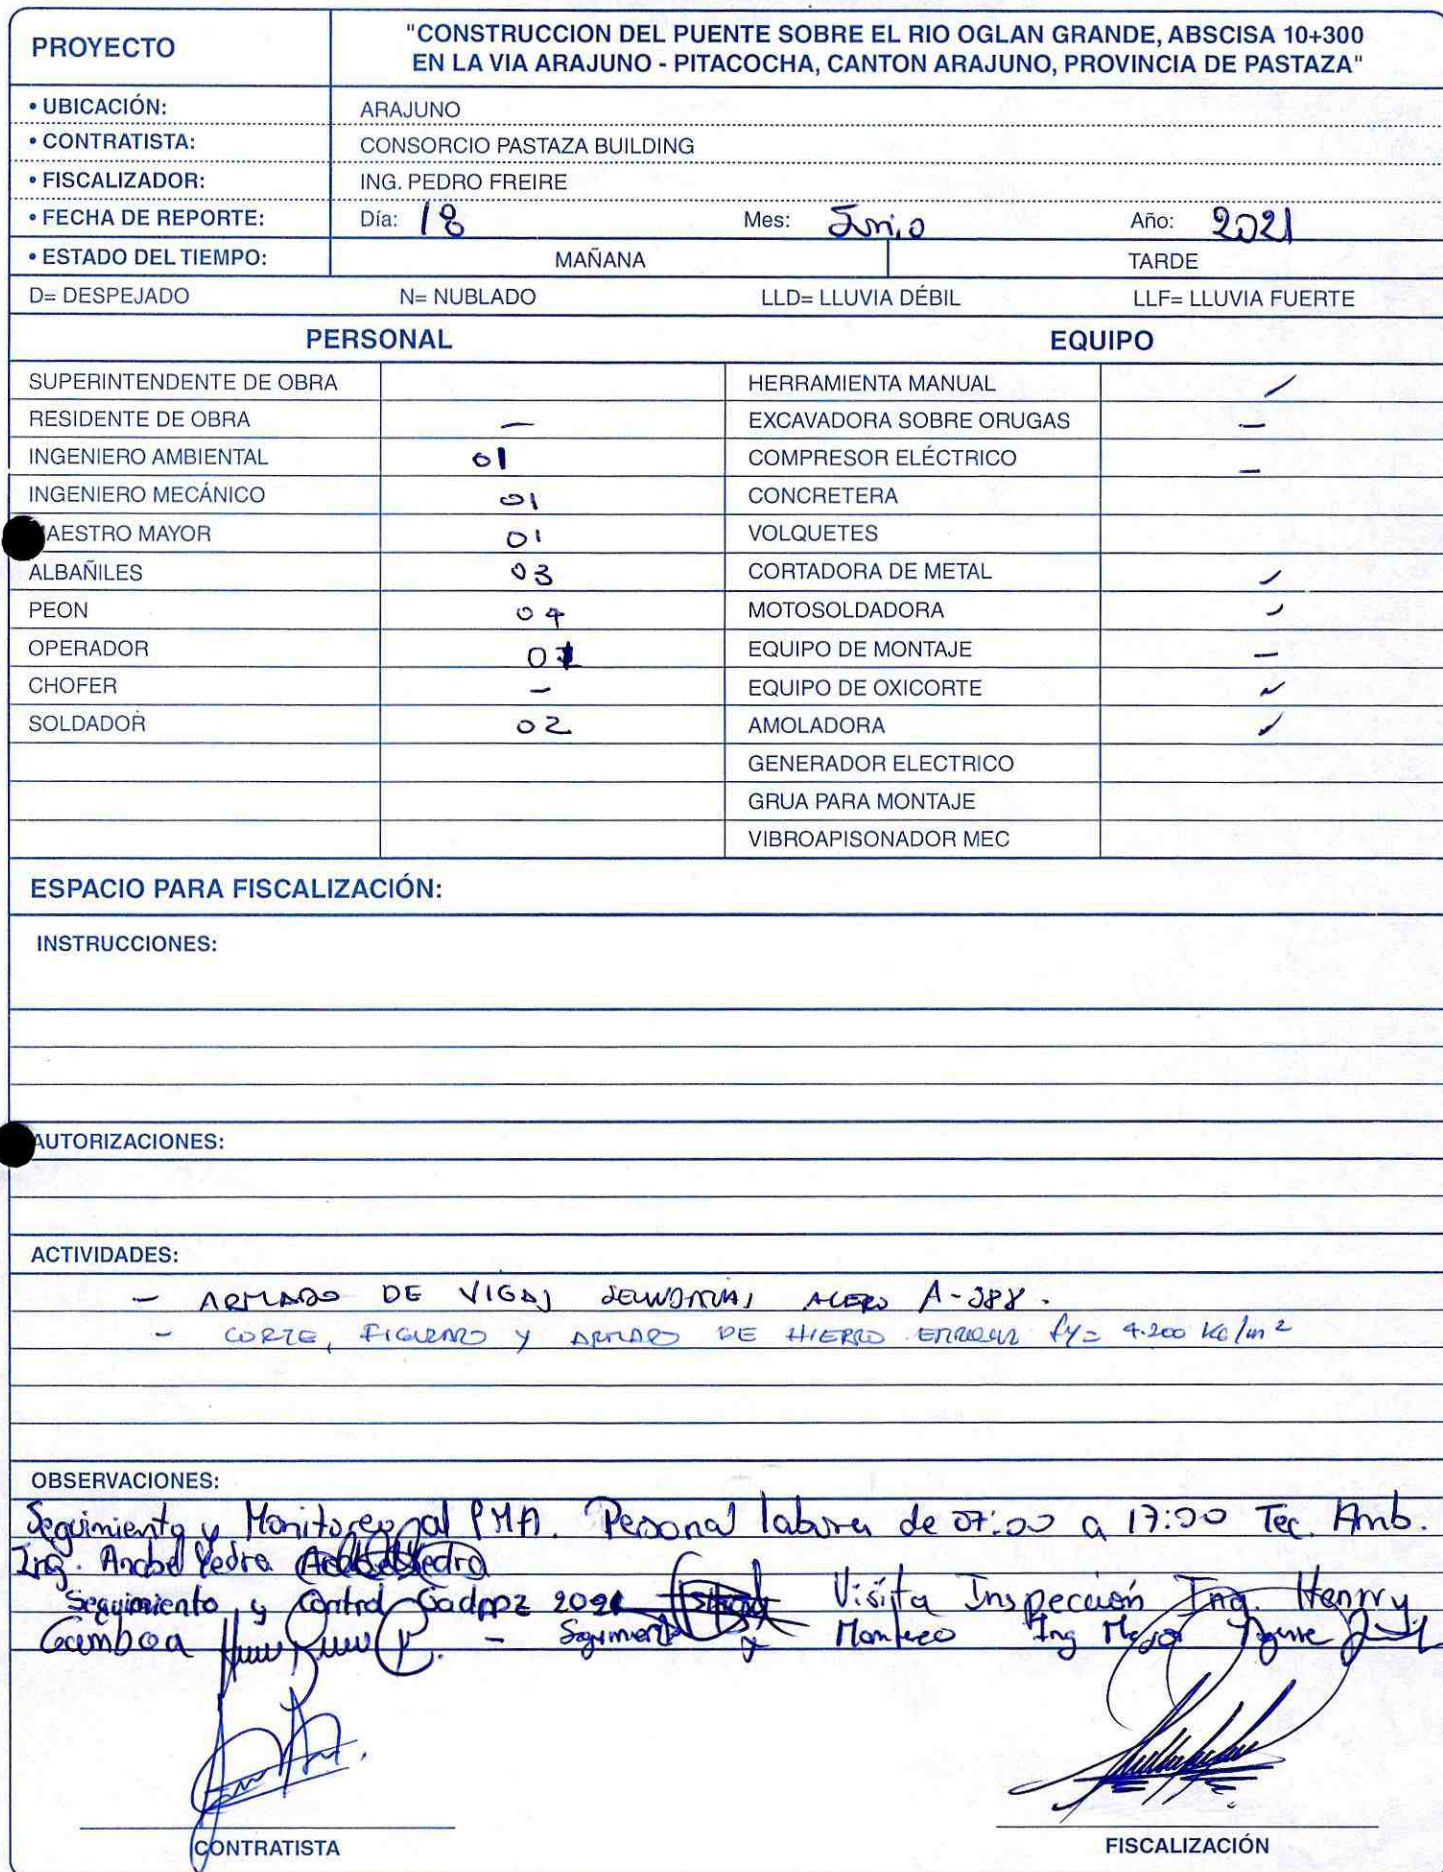 PROYECTO
"CONSTRUCCION DEL PUENTE SOBRE EL RIO OGLAN GRANDE, ABSCISA 10+300
EN LA VIA ARAJUNO - PITACOCHA, CANTON ARAJUNO, PROVINCIA DE PASTAZA"
• UBICACIÓN: ARAJUNO
• CONTRATISTA: CONSORCIO PASTAZA BUILDING
• FISCALIZADOR: ING. PEDRO FREIRE
• FECHA DE REPORTE: Día: 18 Mes: Junio Año: 2021
• ESTADO DEL TIEMPO: MAÑANA TARDE
D= DESPEJADO N= NUBLADO LLD= LLUVIA DÉBIL LLF= LLUVIA FUERTE
PERSONAL EQUIPO
SUPERINTENDENTE DE OBRA HERRAMIENTA MANUAL ✓
RESIDENTE DE OBRA — EXCAVADORA SOBRE ORUGAS —
INGENIERO AMBIENTAL 01 COMPRESOR ELÉCTRICO —
INGENIERO MECÁNICO 01 CONCRETERA
MAESTRO MAYOR 01 VOLQUETES
ALBAÑILES 03 CORTADORA DE METAL ✓
PEON 04 MOTOSOLDADORA ✓
OPERADOR 01 EQUIPO DE MONTAJE —
CHOFER — EQUIPO DE OXICORTE ✓
SOLDADOR 02 AMOLADORA ✓
GENERADOR ELECTRICO
GRUA PARA MONTAJE
VIBROAPISONADOR MEC
ESPACIO PARA FISCALIZACIÓN:
INSTRUCCIONES:
AUTORIZACIONES:
ACTIVIDADES:
- ARMADO DE VIGAS ACERO A-588.
- CORTE, FIGURADO Y ARMADO DE HIERRO fy= 4.200 KG/m2
OBSERVACIONES:
Seguimiento y Monitoreo al PMA. Personal labora de 07:00 a 17:00 Tec. Amb.
Ing. Anabel Yedra
Seguimiento y Control Gadppz 2021 Visita Inspección Ing. Henrry
Gamboa - Seguimiento y Ing
CONTRATISTA FISCALIZACIÓN